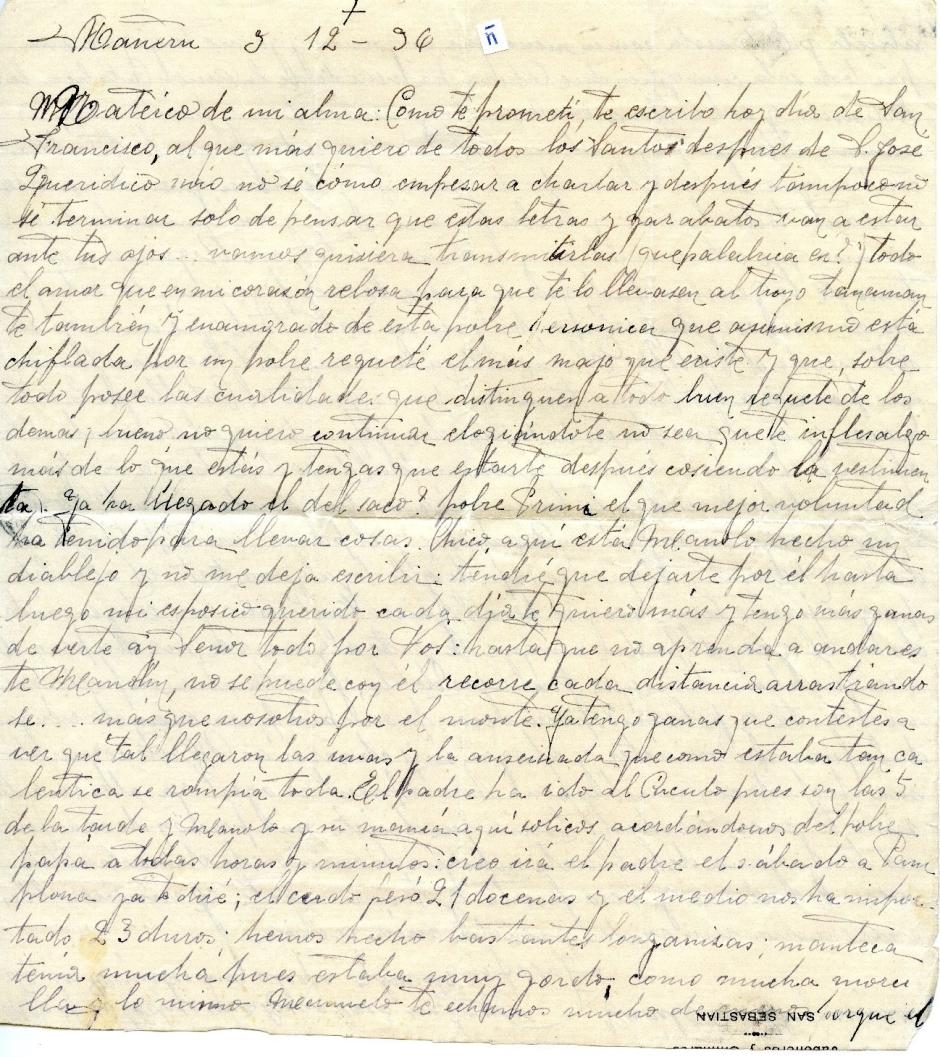 Mañeru 3 12 - 36
Mateico de mi alma: Como te prometí, te escribo hoy día de San
Francisco, al que más quiero de todos los Santos despues de S. José
Queridico mio no sé cómo empesar a charlar y después tampoco
sé terminar solo de pensar que estas letras y garabatos van a estar
ante tus ojos... vamos quisiera transmitirlas (que palabrica eh?) todo
el amor que en mi corazón rebosa para que te lo llevasen al tuyo
te también y enamorado de esta pobre Personica que asimismo está
chiflada por un pobre requeté el más majo que existe y que, sobre
todo posee las cualidades que distinguen a todo buen requeté de los
demas; bueno no quiero continuar elogiándote no sea que te infles algo
más de lo que estás y tengas que estarte después cosiendo la vestimen
ta). ¿Ya ha llegado el del saco? pobre Primi el que mejor voluntad
ha tenido para llevar cosas. Chico, aquí está Manolo hecho un
diablejo y no me deja escribir: tendré que dejarte por él hasta
luego mi esposico querido cada día te quiero más y tengo más ganas
de verte ay Señor todo por Vos: hasta que no aprenda a andar es
te Manolín, no se puede con él recorre cada distancia arrastrándo
se.... más que nosotros por el monte. Ya tengo ganas que contestes a
ver que tal llegaron las uvas y la que como estaba tan ca
lentica se rompía toda. El padre ha ido al Círculo pues son las 5
de la tarde y Manolo y su mamá aquí solicos, acordándonos del pobre
papá a todas horas y minutos: creo irá el padre el sábado a Pam
plona ya te diré; el cerdo pesó 21 docenas y el medio nos ha impor-
tado 23 duros; hemos hecho bastantes longanizas; manteca
tenía mucha pues estaba muy gordo, como mucha morci
lla, y lo mismo te echamos mucho de porque el
SAN SEBASTIAN